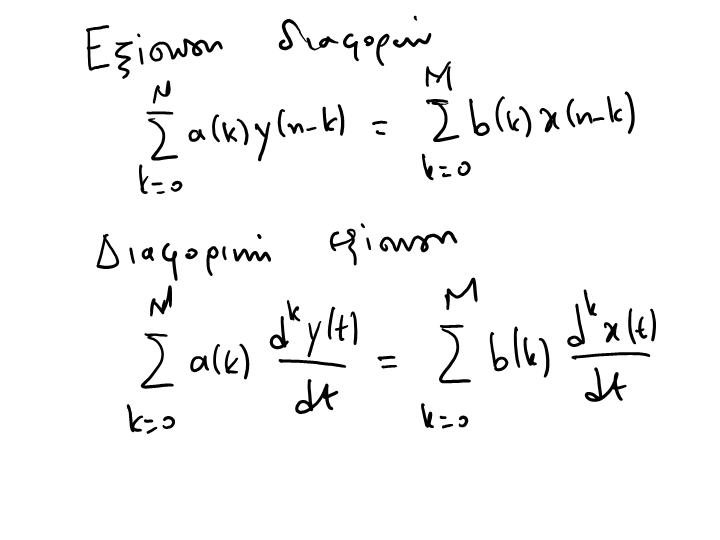 Εξίσωση διαφορών
\sum_{k=0}^{N} a(k) y(n-k) = \sum_{k=0}^{M} b(k) x(n-k)
Διαφορική εξίσωση
\sum_{k=0}^{N} a(k) \frac{d^k y(t)}{dt} = \sum_{k=0}^{M} b(k) \frac{d^k x(t)}{dt}